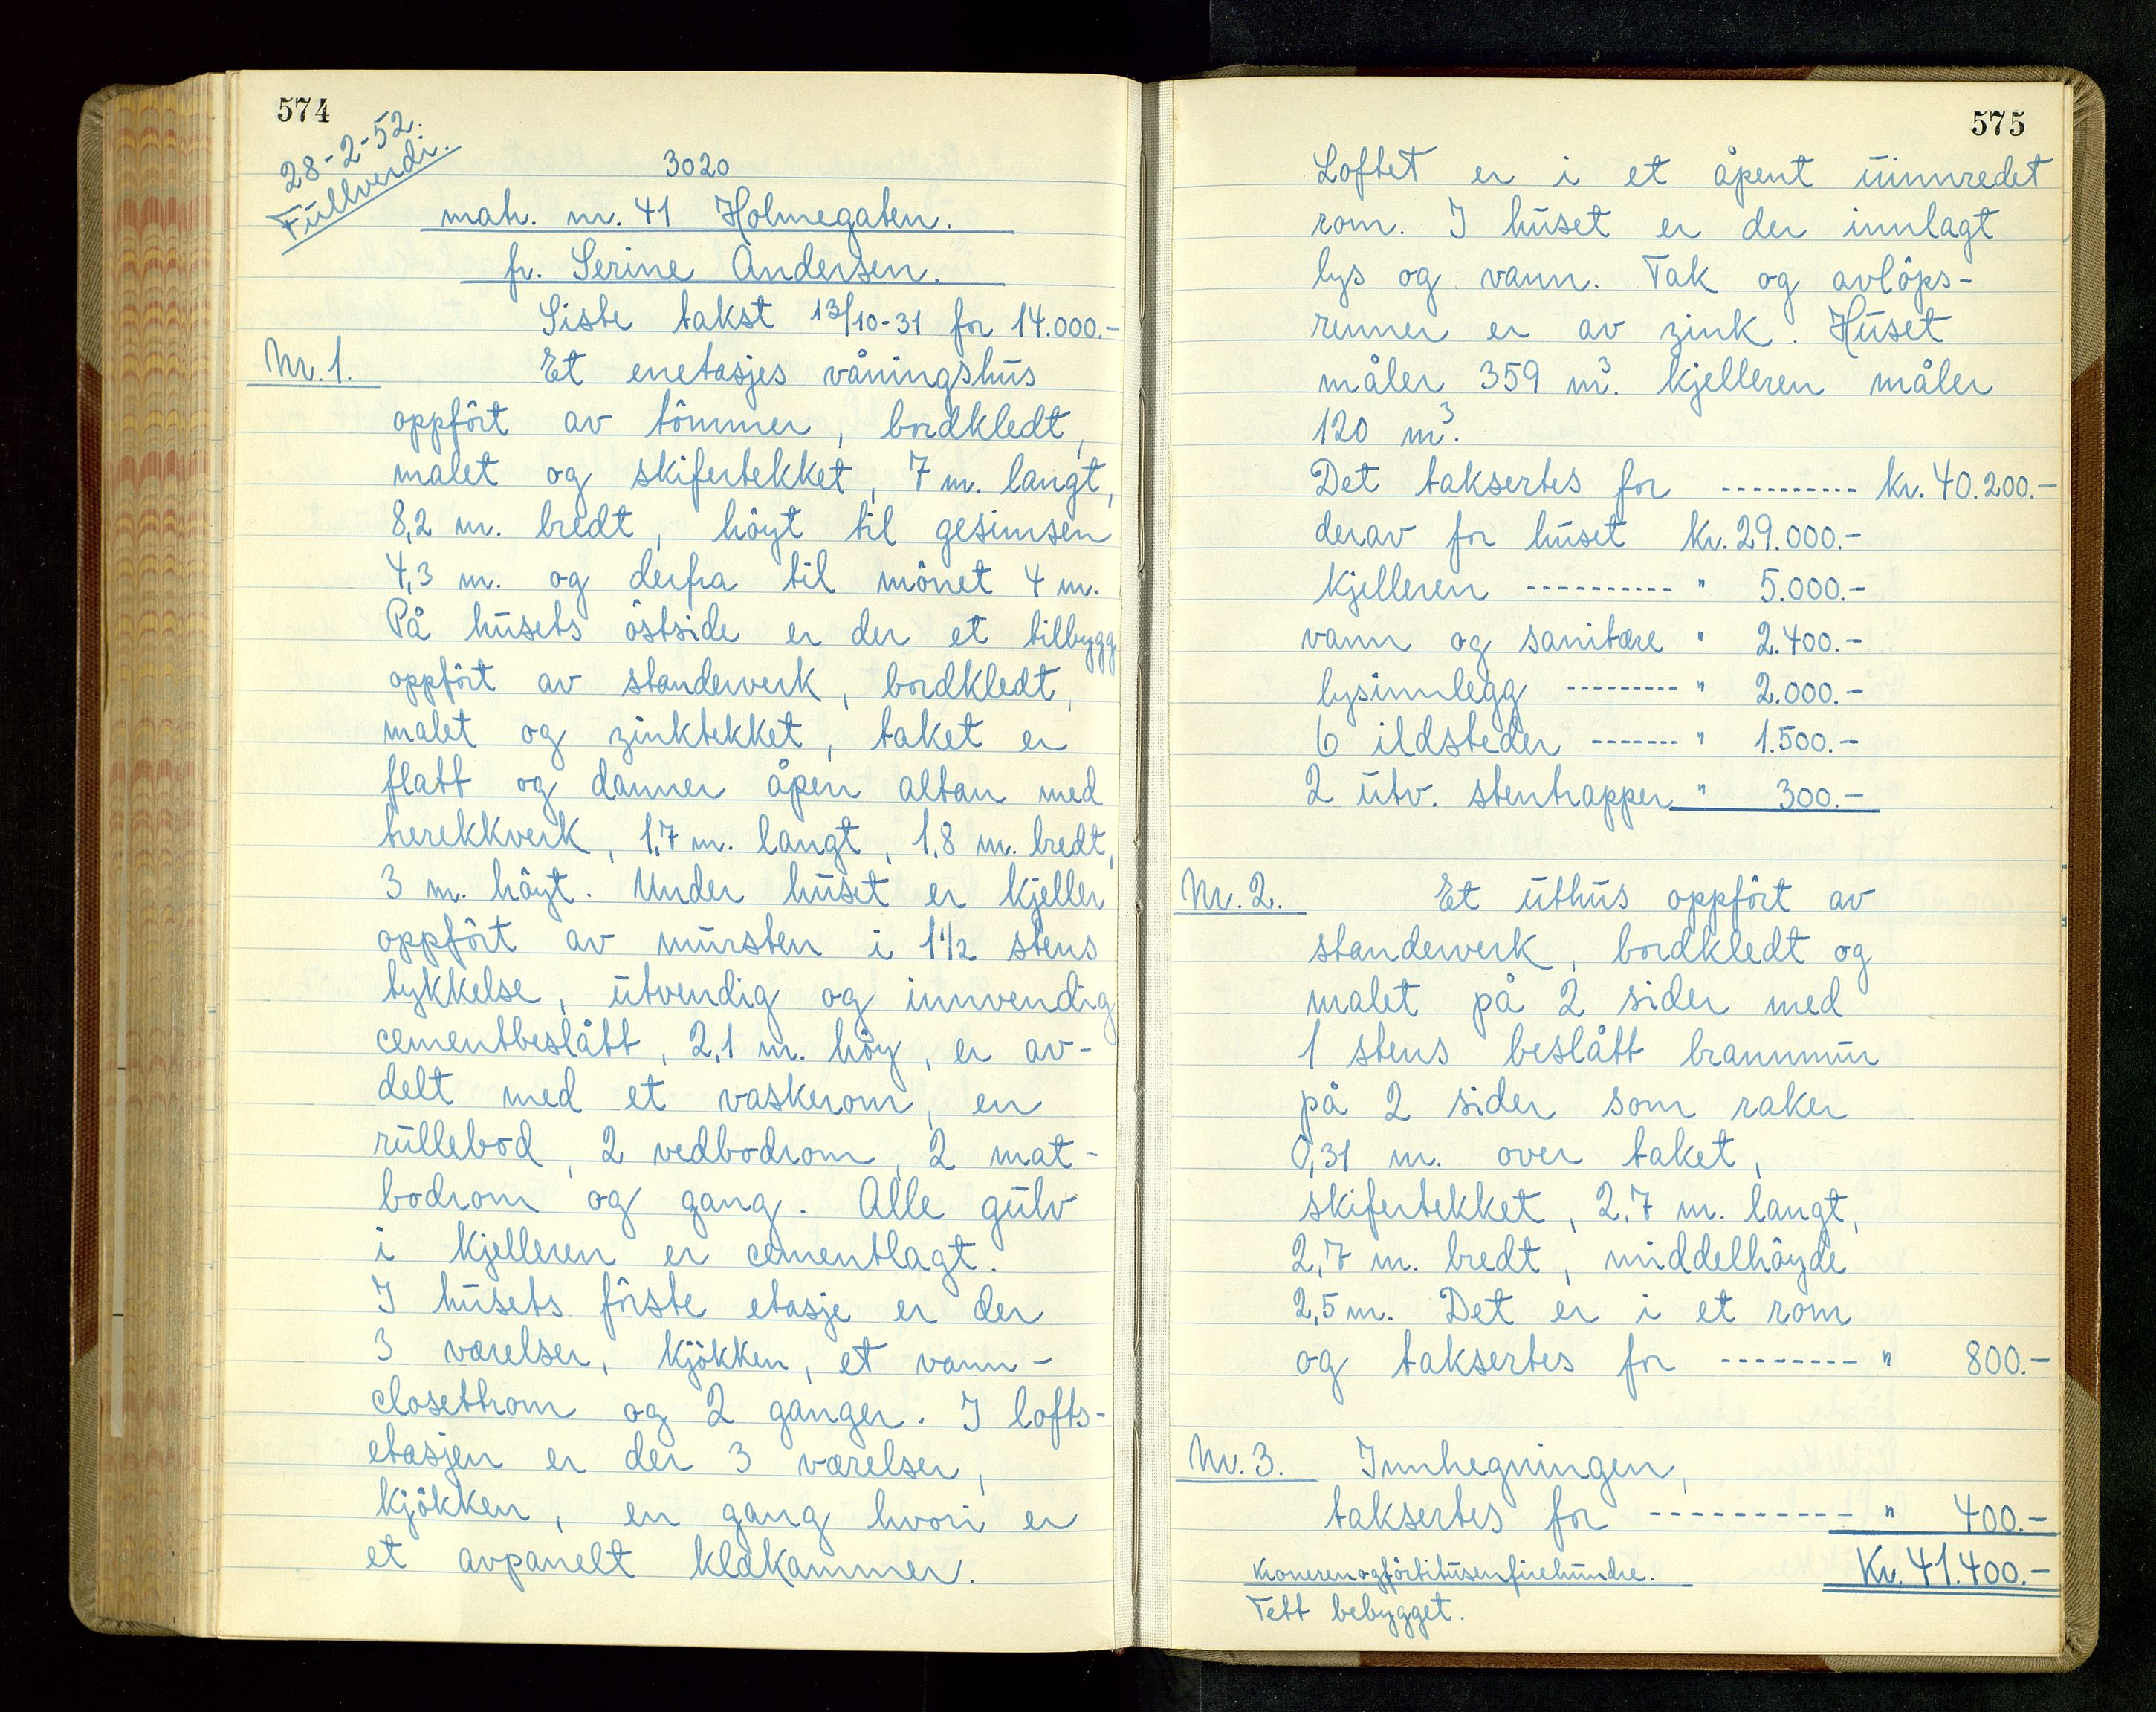 574
28-2-52.
Fullverdi.
3020
matr. nr. 41 Holmegaten.
fr. Serine Andersen.
Siste takst 13/10-31 for 14.000.-
Nr. 1.
Et enetasjes våningshus
oppført av tømmer, bordkledt,
malet og skifertekket, 7 m. langt,
8,2 m. bredt, høyt til gesimsen
4,3 m. og derfra til mønet 4 m.
På husets østside er der et tilbygg
oppført av standerverk, bordkledt,
malet og zinktekket, taket er
flatt og danner åpen altan med
trerekkverk, 1,7 m. langt, 1,8 m. bredt,
3 m. høyt. Under huset er kjeller
oppført av mursten i 1 1/2 stens
tykkelse, utvendig og innvendig
cementbeslått, 2,1 m. høy, er av-
delt med et vaskerom, en
rullebod, 2 vedbodrom, 2 mat-
bodrom og gang. Alle gulv
i kjelleren er cementlagt.
I husets første etasje er der
3 værelser, kjøkken, et vann-
closettrom og 2 ganger. I lofts-
etasjen er der 3 værelser,
kjøkken, en gang hvori er
et avpanelt klækammer.
575
Loftet er i et åpent uinnredet
rom. I huset er der innlagt
lys og vann. Tak og avløps-
renner er av zink. Huset
måler 359 m³. kjelleren måler
120 m³.
Det taksertes for ---------- kr. 40.200.-
derav for huset kr. 29.000.-
kjelleren ---------- " 5.000.-
vann og sanitære " 2.400.-
lysinnlegg --------- " 2.000.-
6 ildsteder ------- " 1.500.-
2 utv. stentrapper " 300.-
Nr. 2.
Et uthus oppført av
standerverk, bordkledt og
malet på 2 sider med
1 stens beslått brannmur
på 2 sider som raker
0,31 m. over taket,
skifertekket, 2,7 m. langt,
2,7 m. bredt, middelhøyde
2,5 m. Det er i et rom
og taksertes for -------- " 800.-
Nr. 3. Innhegningen,
taksertes for ----------- " 400.-
Kronerenogførtitusenfirehundre. Kr. 41.400.-
Tett bebygget.